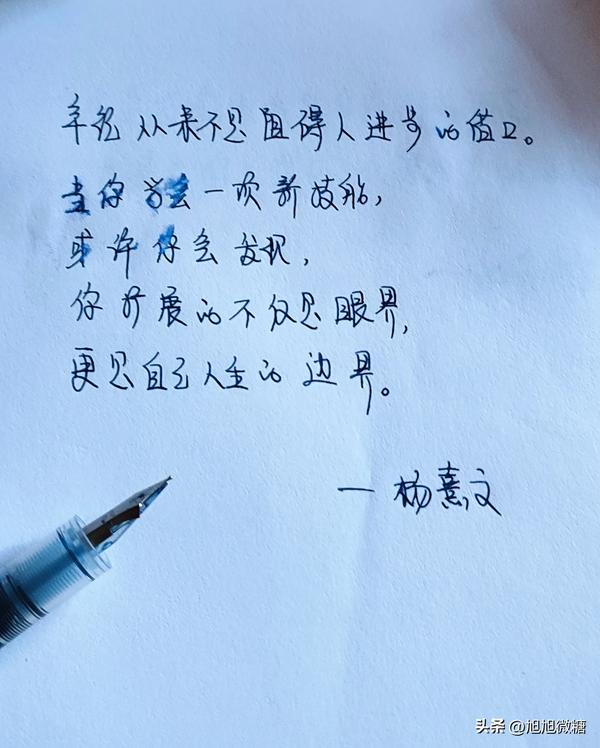 年纪从来不是阻碍人进步的借口。
当你学会一次新技能,
或许你会发现,
你扩展的不仅是眼界,
更是自己人生的边界。
— 杨熹文
头条 @旭旭微糖